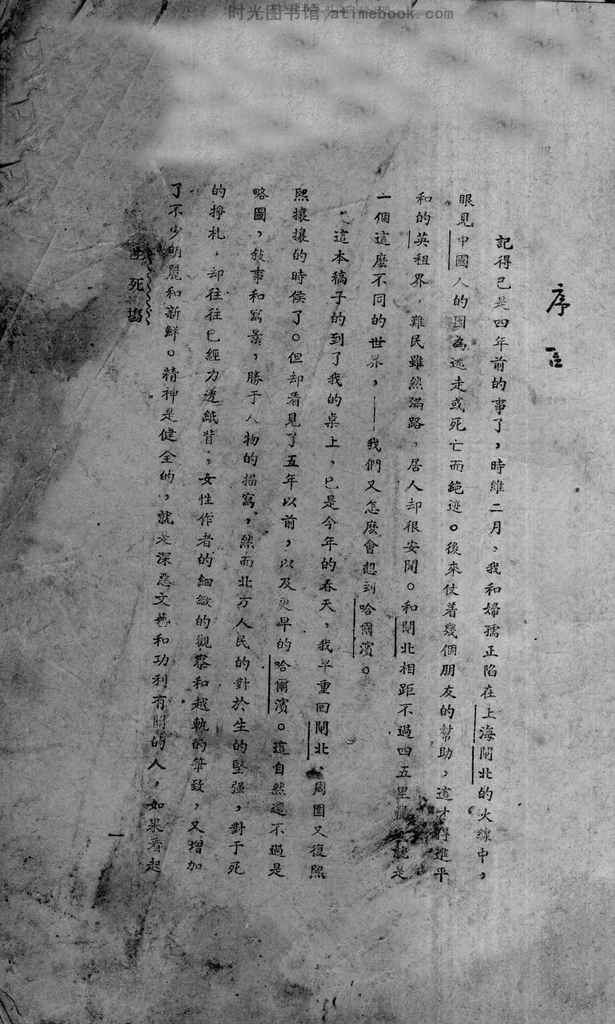 时光图书馆 atimebook.com
序言
記得已是四年前的事了，時維二月，我和婦孺正陷在上海閘北的火線中，
眼見中國人的因為逃走或死亡而絕迹。後來仗着幾個朋友的幫助，這才得進平
和的英租界　難民雖然滿路，居人却很安閒。和閘北相距不過四五里 就是
一個這麼不同的世界，——我們又怎麼會想到哈爾濱。
這本稿子的到了我的桌上，已是今年的春天，我早重回閘北，周圍又復熙
熙攘攘的時候了。但却看見了五年以前，以及更早的哈爾濱。這自然還不過是
略圖，敍事和寫景，勝于人物的描寫，然而北方人民的對於生的堅强，對于死
的掙札，却往往已經力透紙背；女性作者的細緻的觀察和越軌的筆致，又增加
了不少明麗和新鮮。精神是健全的，就是深惡文藝和功利有關的人，如果看起
生死場
一